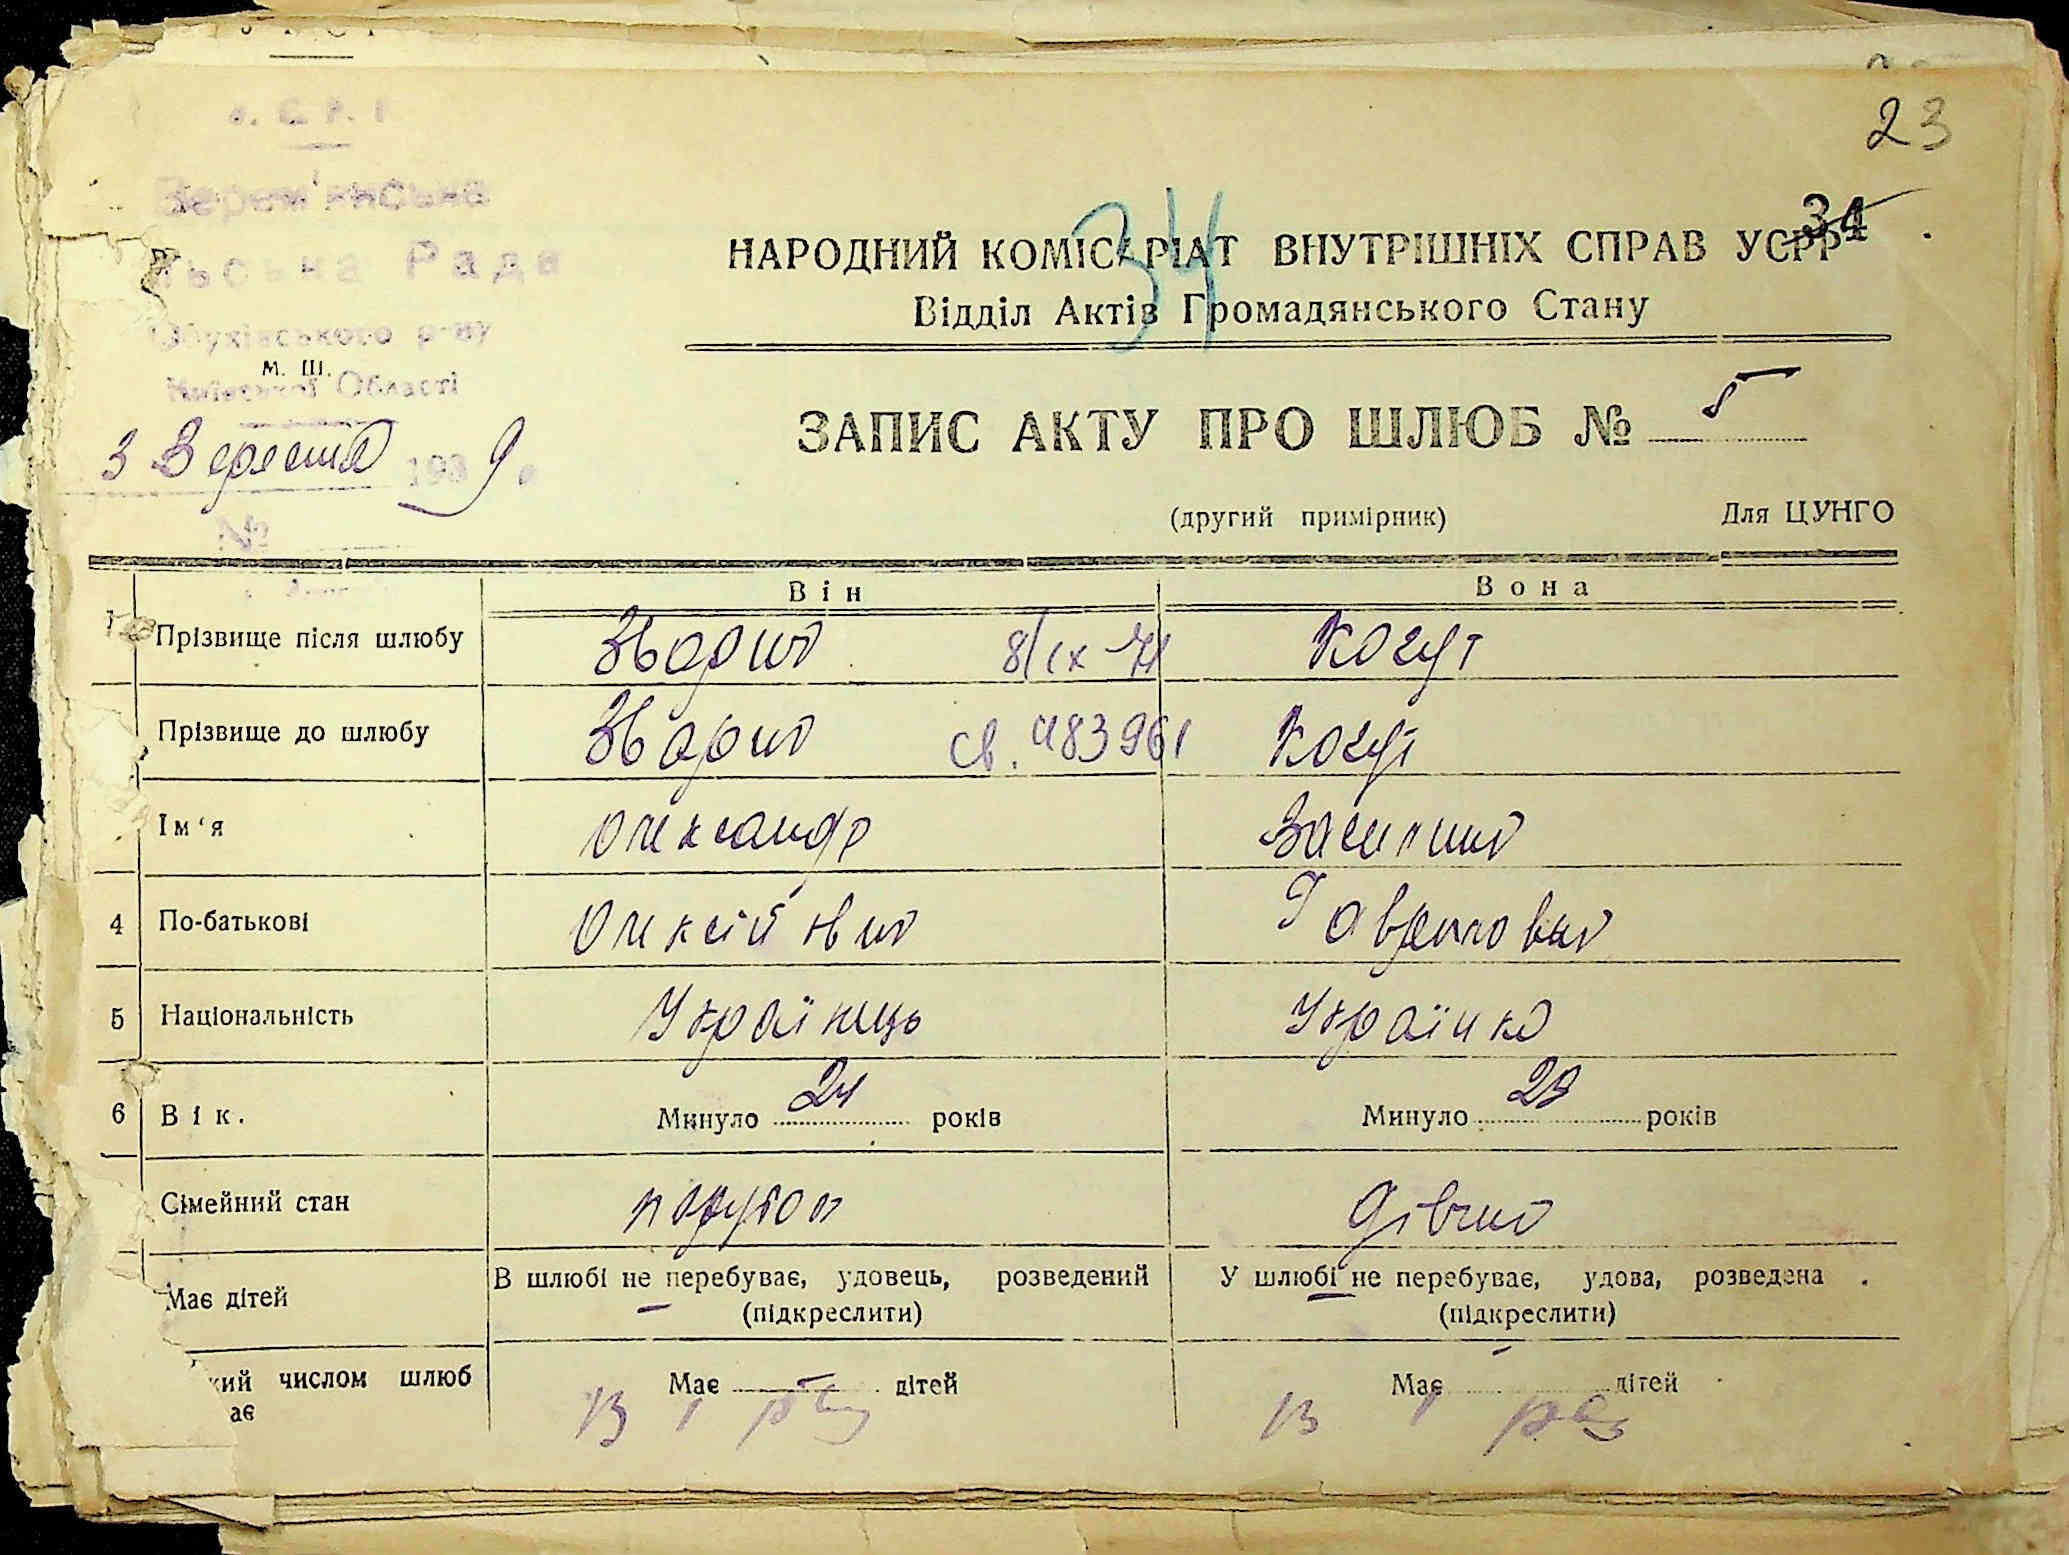 23
34
34
У. С. Р. Р.
Верем'янська
льська Рада
Обухівського р-ну
М. Ш.
Київської Області
3 Вересня 1939 р.
№
НАРОДНИЙ КОМІСАРІАТ ВНУТРІШНІХ СПРАВ УСРР
Відділ Актів Громадянського Стану
ЗАПИС АКТУ ПРО ШЛЮБ № 5
(другий примірник) Для ЦУНГО
Він Вона
Прізвище після шлюбу Зварич 8/ІХ-71 Когут
Прізвище до шлюбу Зварич св. 483961 Когут
Ім'я Олександр Василина
4 По-батькові Олексійович Гаврилович
5 Національність Українець Українка
6 Вік. Минуло 24 років Минуло 29 років
Сімейний стан парубок дівчина
Має дітей В шлюбі не перебуває, удовець, розведений У шлюбі не перебуває, удова, розведена
(підкреслити) (підкреслити)
кий числом шлюб Має — дітей Має дітей
ає в 1 раз в 1 раз